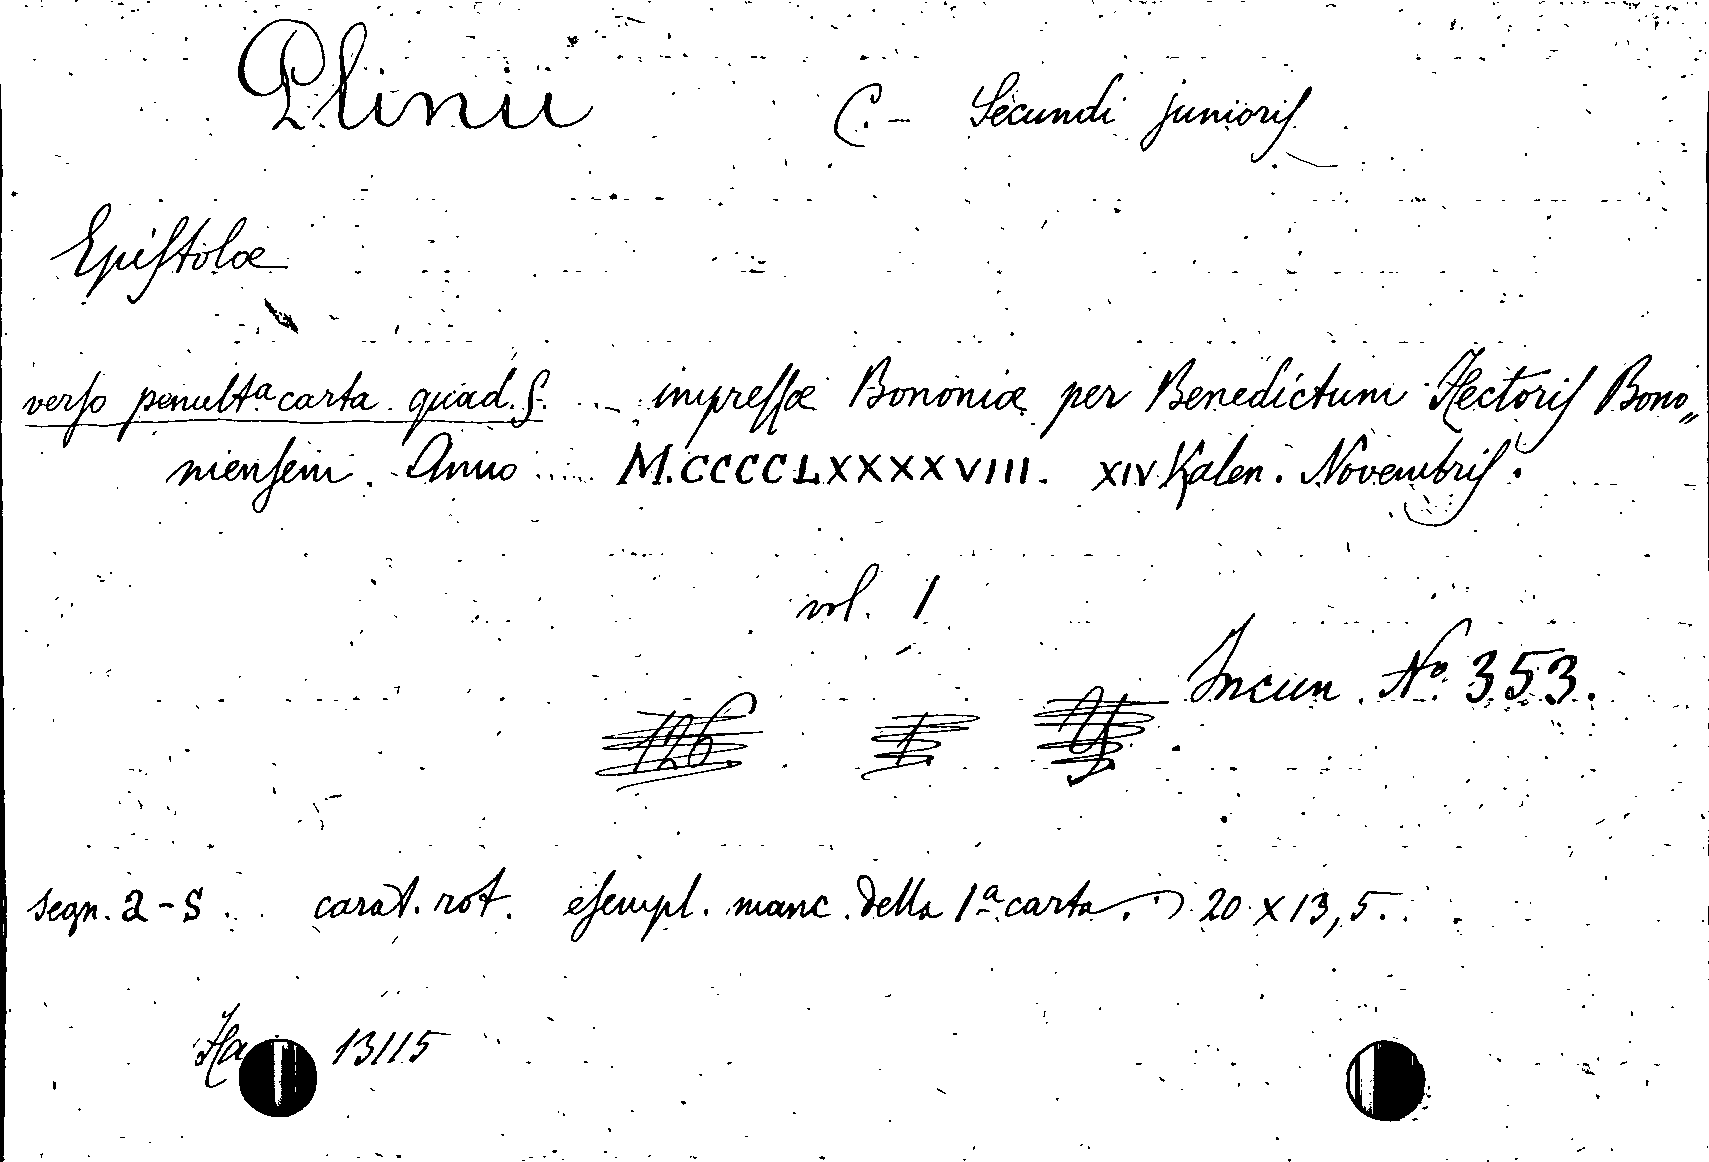 Plinii C. - Secundi junioris
Epistolæ
verso penultª carta quad. S. ... impressæ Bononiæ per Benedictum Hectoris Bono„
niensem. Anno ..... M.CCCCLXXXXVIII. XIV Kalen. Novembris.
vol. 1
Incun. Nº 353.
126. 1.
segn. a-s .. carat. rot. esempl. manc. della 1ª carta. 20 x 13,5.
Ha 13115